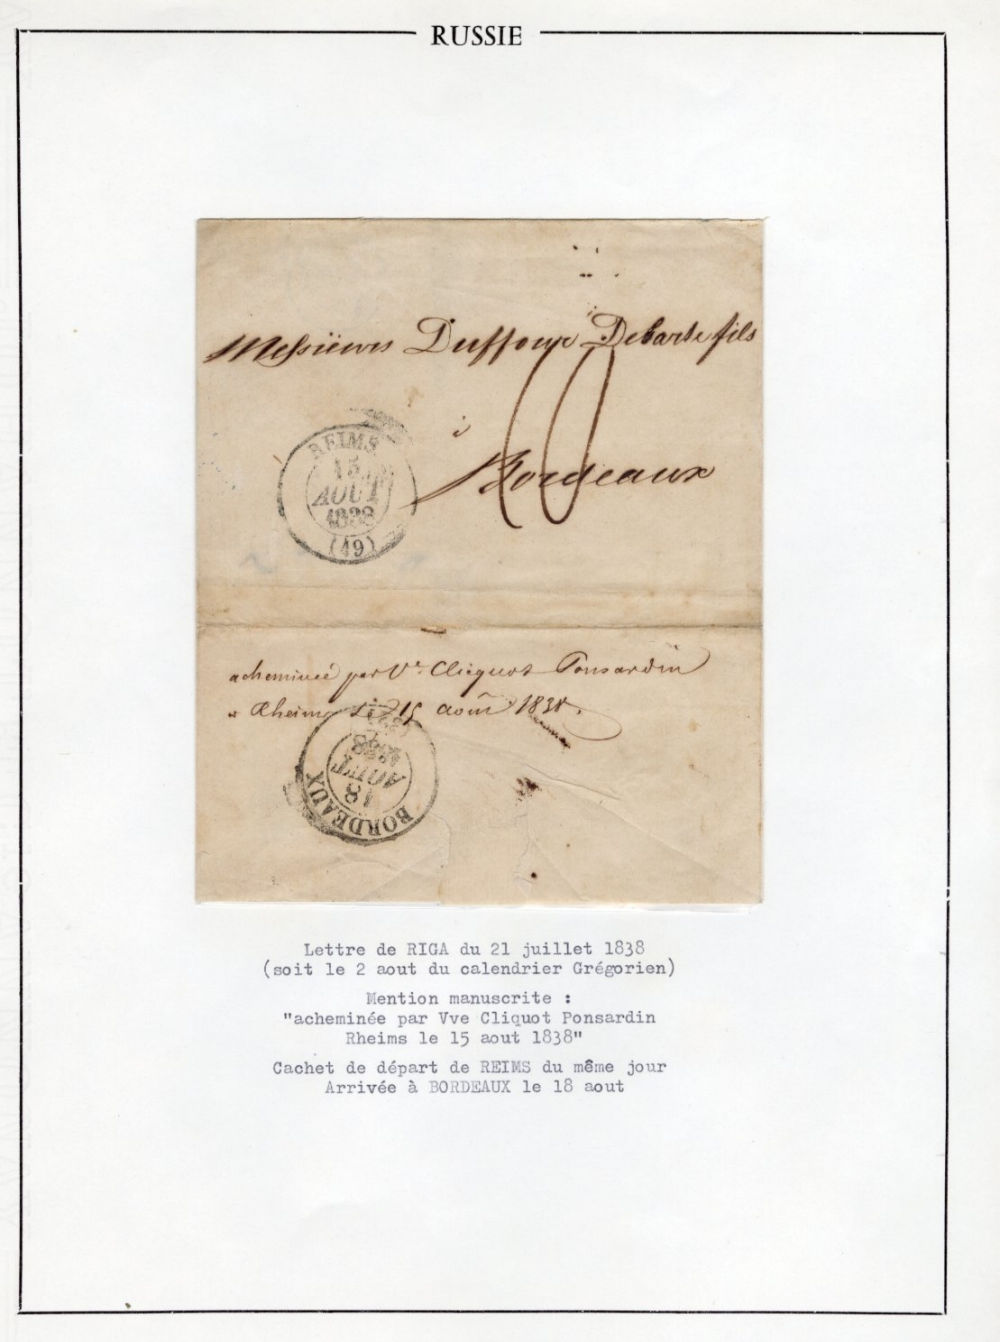 RUSSIE
Messieurs Duffour Debarte fils
10
à
Bordeaux
REIMS
15
AOUT
1838
(49)
acheminée par Ve Clicquot Ponsardin
à Rheims le 15 août 1838.
BORDEAUX
18
AOUT
1838
Lettre de RIGA du 21 juillet 1838
(soit le 2 aout du calendrier Grégorien)
Mention manuscrite :
"acheminée par Vve Cliquot Ponsardin
Rheims le 15 aout 1838"
Cachet de départ de REIMS du même jour
Arrivée à BORDEAUX le 18 aout